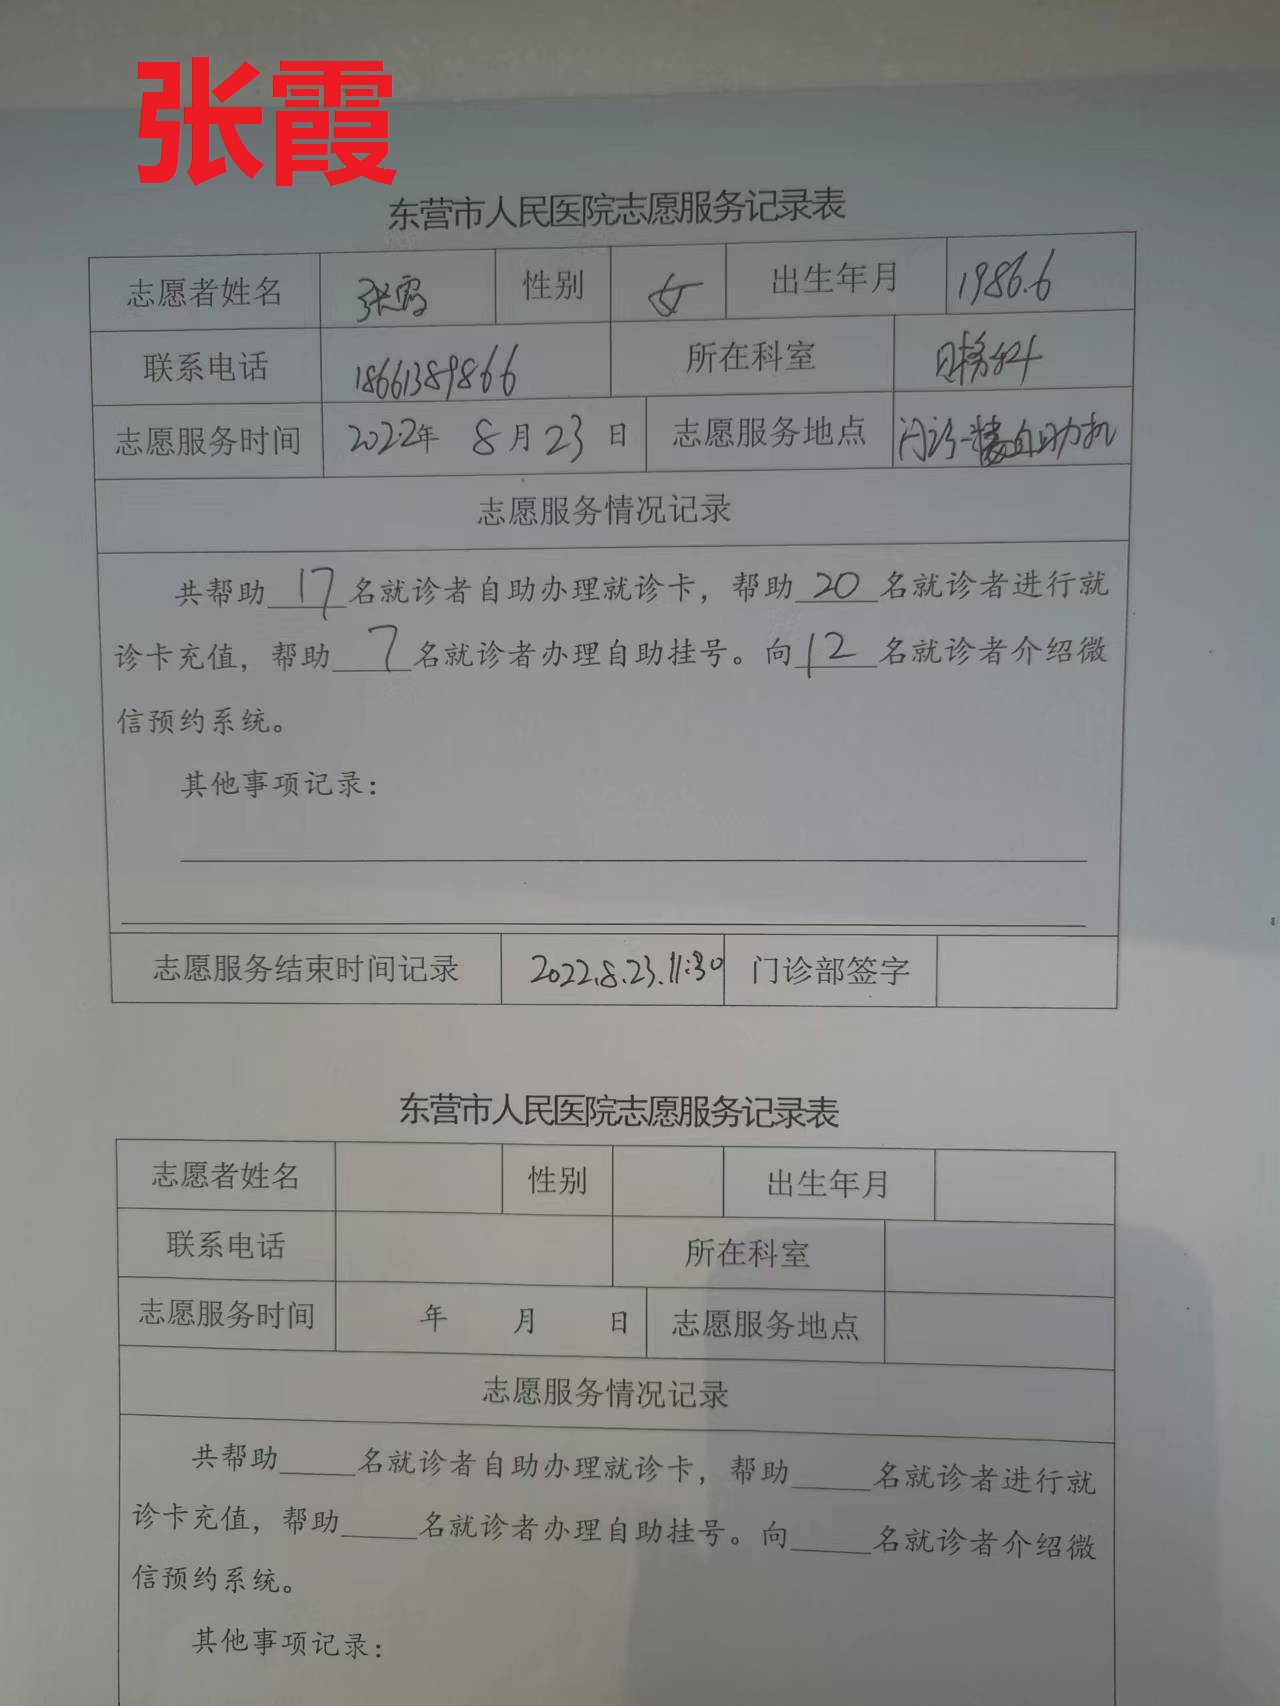 张霞
东营市人民医院志愿服务记录表
志愿者姓名 张霞 性别 女 出生年月 1986.6
联系电话 18661389866 所在科室 财务科
志愿服务时间 2022年 8月23日 志愿服务地点 门诊一楼自助机
志愿服务情况记录
共帮助17名就诊者自助办理就诊卡，帮助20名就诊者进行就
诊卡充值，帮助7名就诊者办理自助挂号。向12名就诊者介绍微
信预约系统。
其他事项记录：
志愿服务结束时间记录 2022.8.23.11:30 门诊部签字
东营市人民医院志愿服务记录表
志愿者姓名 性别 出生年月
联系电话 所在科室
志愿服务时间 年 月 日 志愿服务地点
志愿服务情况记录
共帮助_____名就诊者自助办理就诊卡，帮助_____名就诊者进行就
诊卡充值，帮助_____名就诊者办理自助挂号。向_____名就诊者介绍微
信预约系统。
其他事项记录：